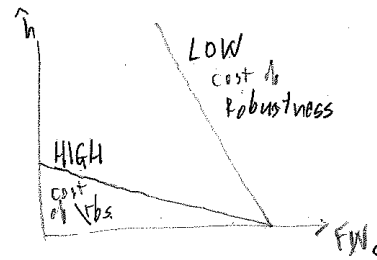 ĥ
LOW
cost of
Robustness
HIGH
cost
of rbs.